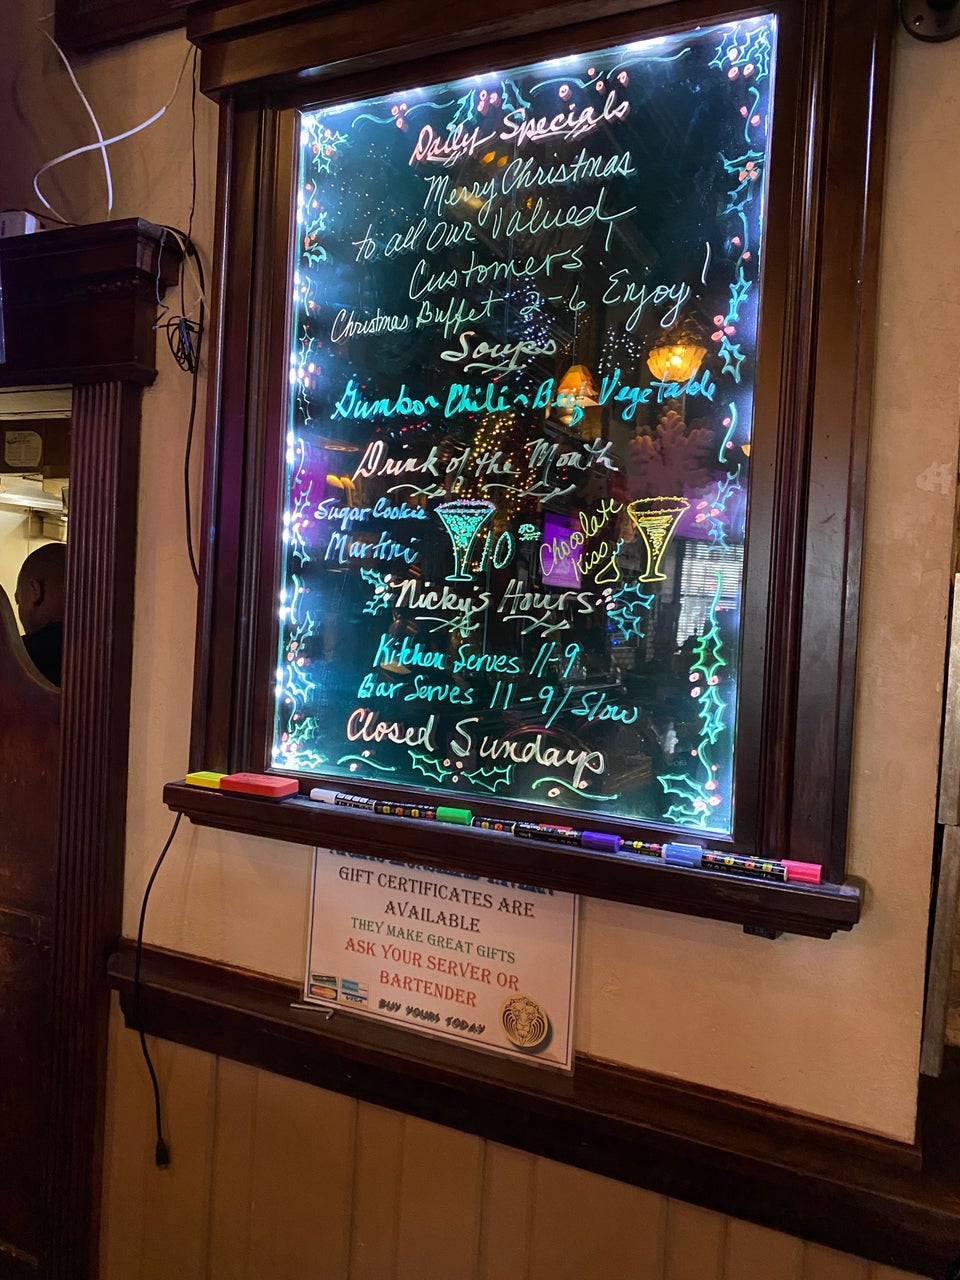 Daily Specials
Merry Christmas
to all our Valued
Customers
Christmas Buffet 2-6 Enjoy!
Soups
Gumbo ~ Chili ~ Beef Vegetable
Drink of the Month
Sugar Cookie
Martini
10⁰⁰
Chocolate
Kiss
Nicky's Hours
Kitchen Serves 11-9
Bar Serves 11-9/Slow
Closed Sundays
GIFT CERTIFICATES ARE
AVAILABLE
THEY MAKE GREAT GIFTS
ASK YOUR SERVER OR
BARTENDER
VISA
BUY YOURS TODAY